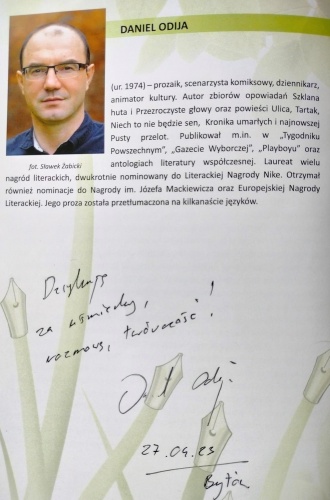 DANIEL ODIJA
(ur. 1974) – prozaik, scenarzysta komiksowy, dziennikarz,
animator kultury. Autor zbiorów opowiadań Szklana
huta i Przezroczyste głowy oraz powieści Ulica, Tartak,
Niech to nie będzie sen, Kronika umarłych i najnowszej
Pusty przelot. Publikował m.in. w „Tygodniku
Powszechnym”, „Gazecie Wyborczej”, „Playboyu” oraz
antologiach literatury współczesnej. Laureat wielu
nagród literackich, dwukrotnie nominowany do Literackiej Nagrody Nike. Otrzymał
również nominacje do Nagrody im. Józefa Mackiewicza oraz Europejskiej Nagrody
Literackiej. Jego proza została przetłumaczona na kilkanaście języków.
fot. Sławek Żabicki
Dziękuję
za uśmiechy,
rozmowy, twórczość!
27.09.23
Bytów